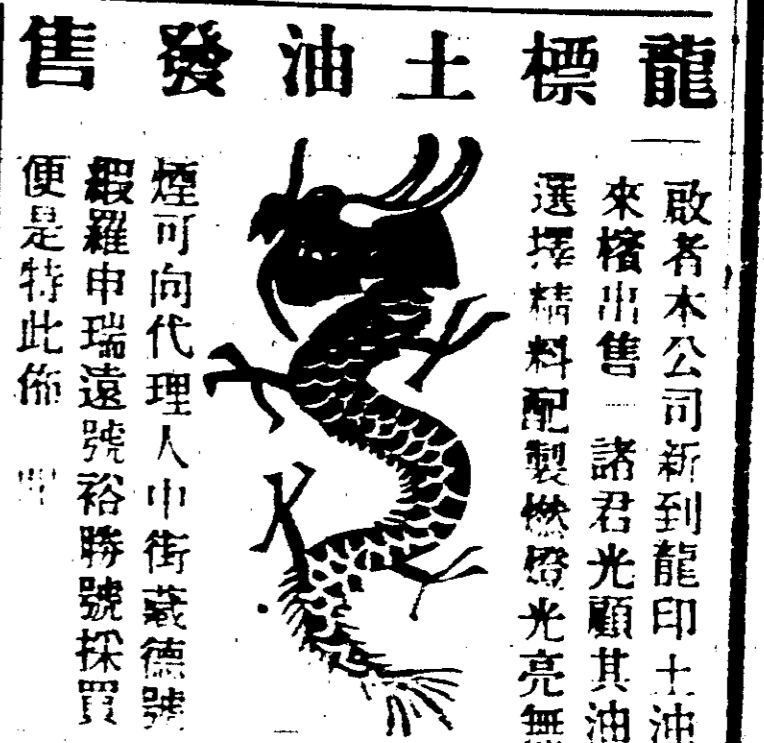 龍標土油發售
啟者本公司新到龍印土油
來檳出售 諸君光顧其油
選擇精料配製燃燈光亮無
煙可向代理人中街葳德號
緞羅申瑞遠號裕勝號採買
便是特此佈